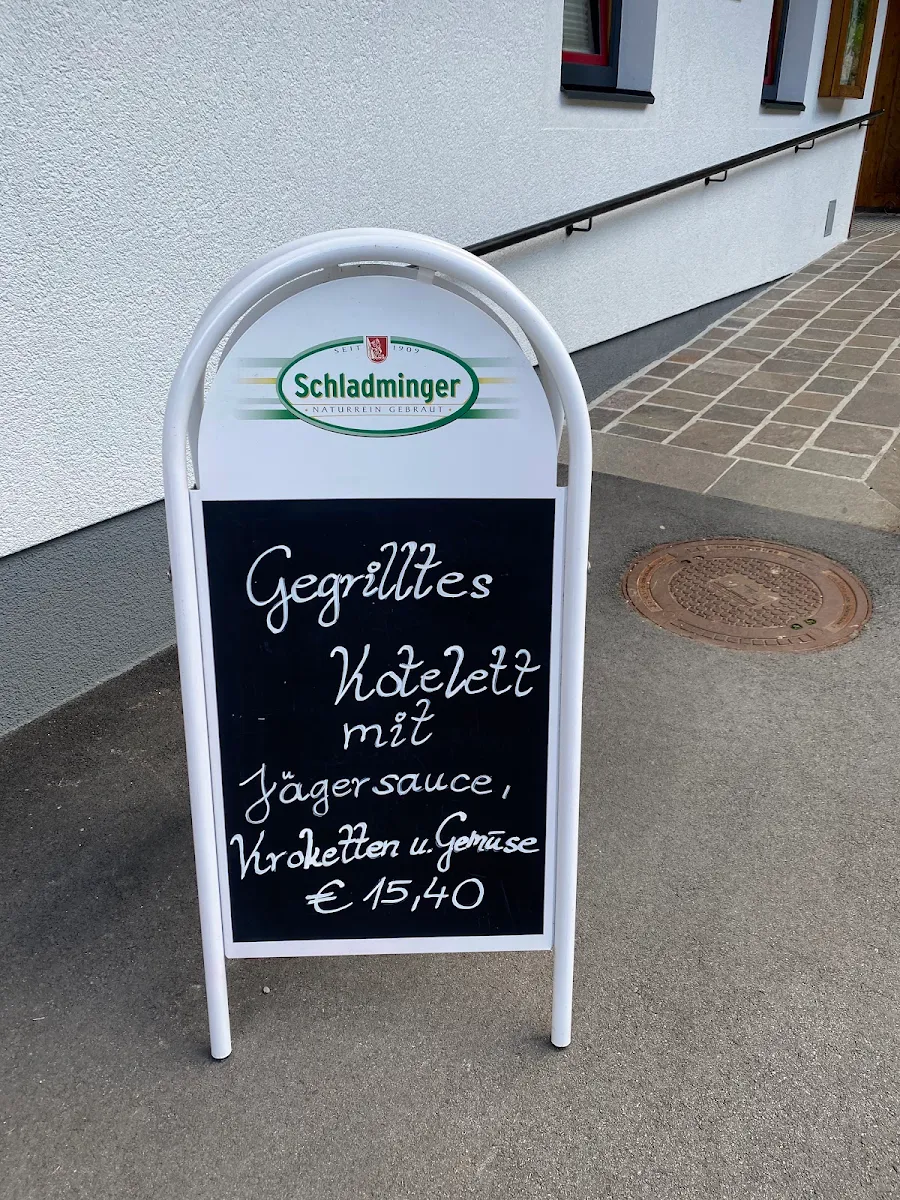 SEIT 1909
Schladminger
· NATURREIN GEBRAUT ·
Gegrilltes
Kotelett
mit
Jägersauce,
Kroketten u. Gemüse
€ 15,40